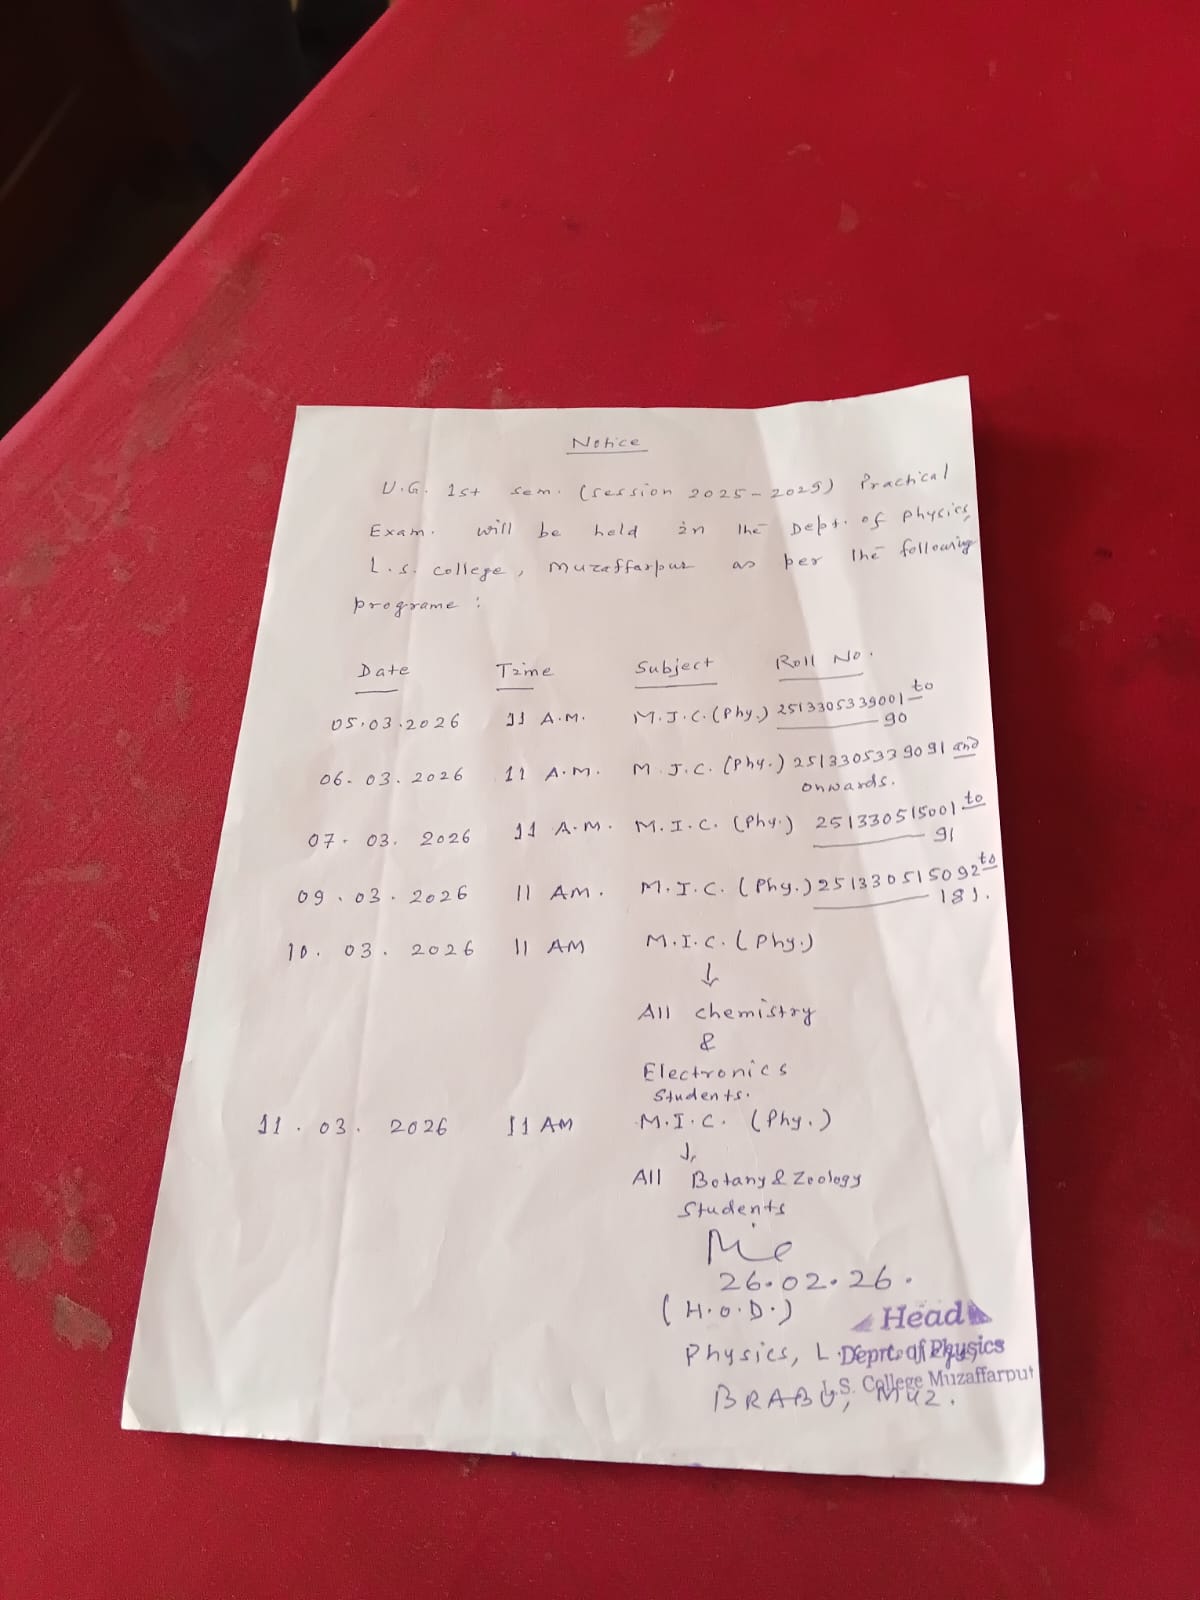 Notice
U.G. 1st sem. (session 2025-2029) Practical
Exam. will be held in the Dept. of physics,
L.S. college, Muzaffarpur as per the following
programe :
Date Time Subject Roll No.
05.03.2026 11 A.M. M.J.C. (Phy.) 2513305339001 to
90
06.03.2026 11 A.M. M.J.C. (Phy.) 2513305339091 and
onwards.
07.03.2026 11 A.M. M.I.C. (Phy.) 251330515001 to
91
09.03.2026 11 AM. M.I.C. (Phy.) 251330515092 to
181.
10.03.2026 11 AM M.I.C. (Phy.)
↓
All chemistry
&
Electronics
Students.
11.03.2026 11 AM M.I.C. (Phy.)
↓
All Botany & Zoology
Students
26.02.26.
(H.O.D.)
Head
Physics,
Deprt. of Physics
L.S. College Muzaffarpur
BRABU, Muz.